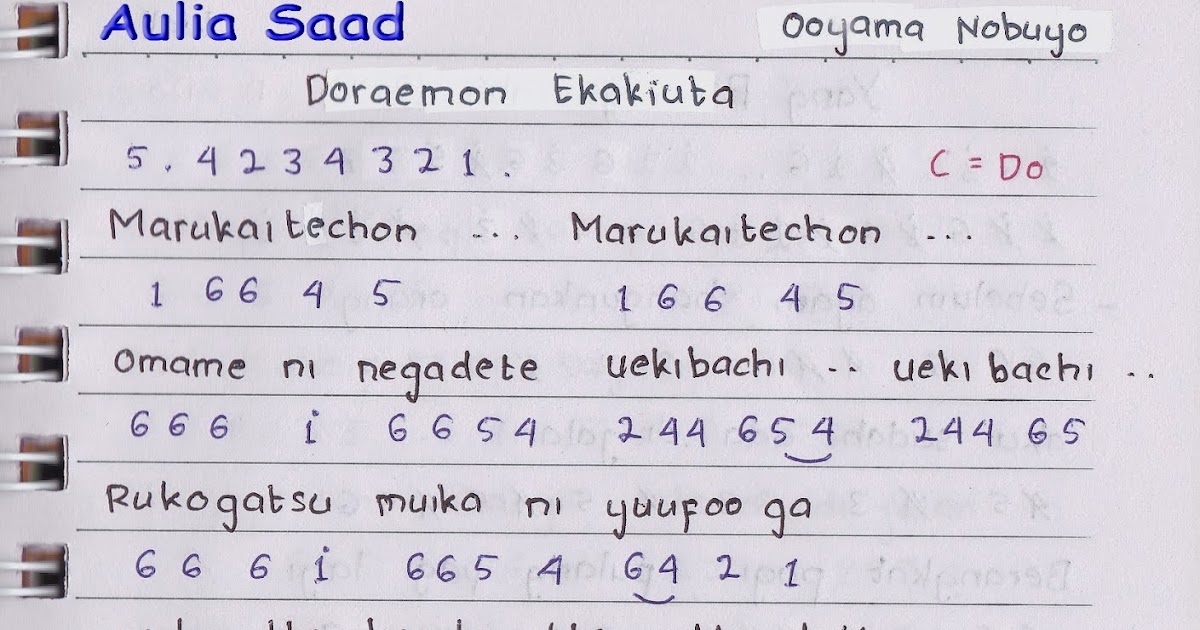 Aulia Saad Ooyama Nobuyo
Doraemon Ekakiuta
5 . 4 2 3 4 3 2 1 . C = Do
Marukaitechon ... Marukaitechon ...
1 6 6 4 5 1 6 6 4 5
Omame ni negadete uekibachi .. ueki bachi ..
6 6 6 i 6 6 5 4 2 4 4 6 5 4 2 4 4 6 5
Rukogatsu muika ni yuufoo ga
6 6 6 i 6 6 5 4 6 4 2 1